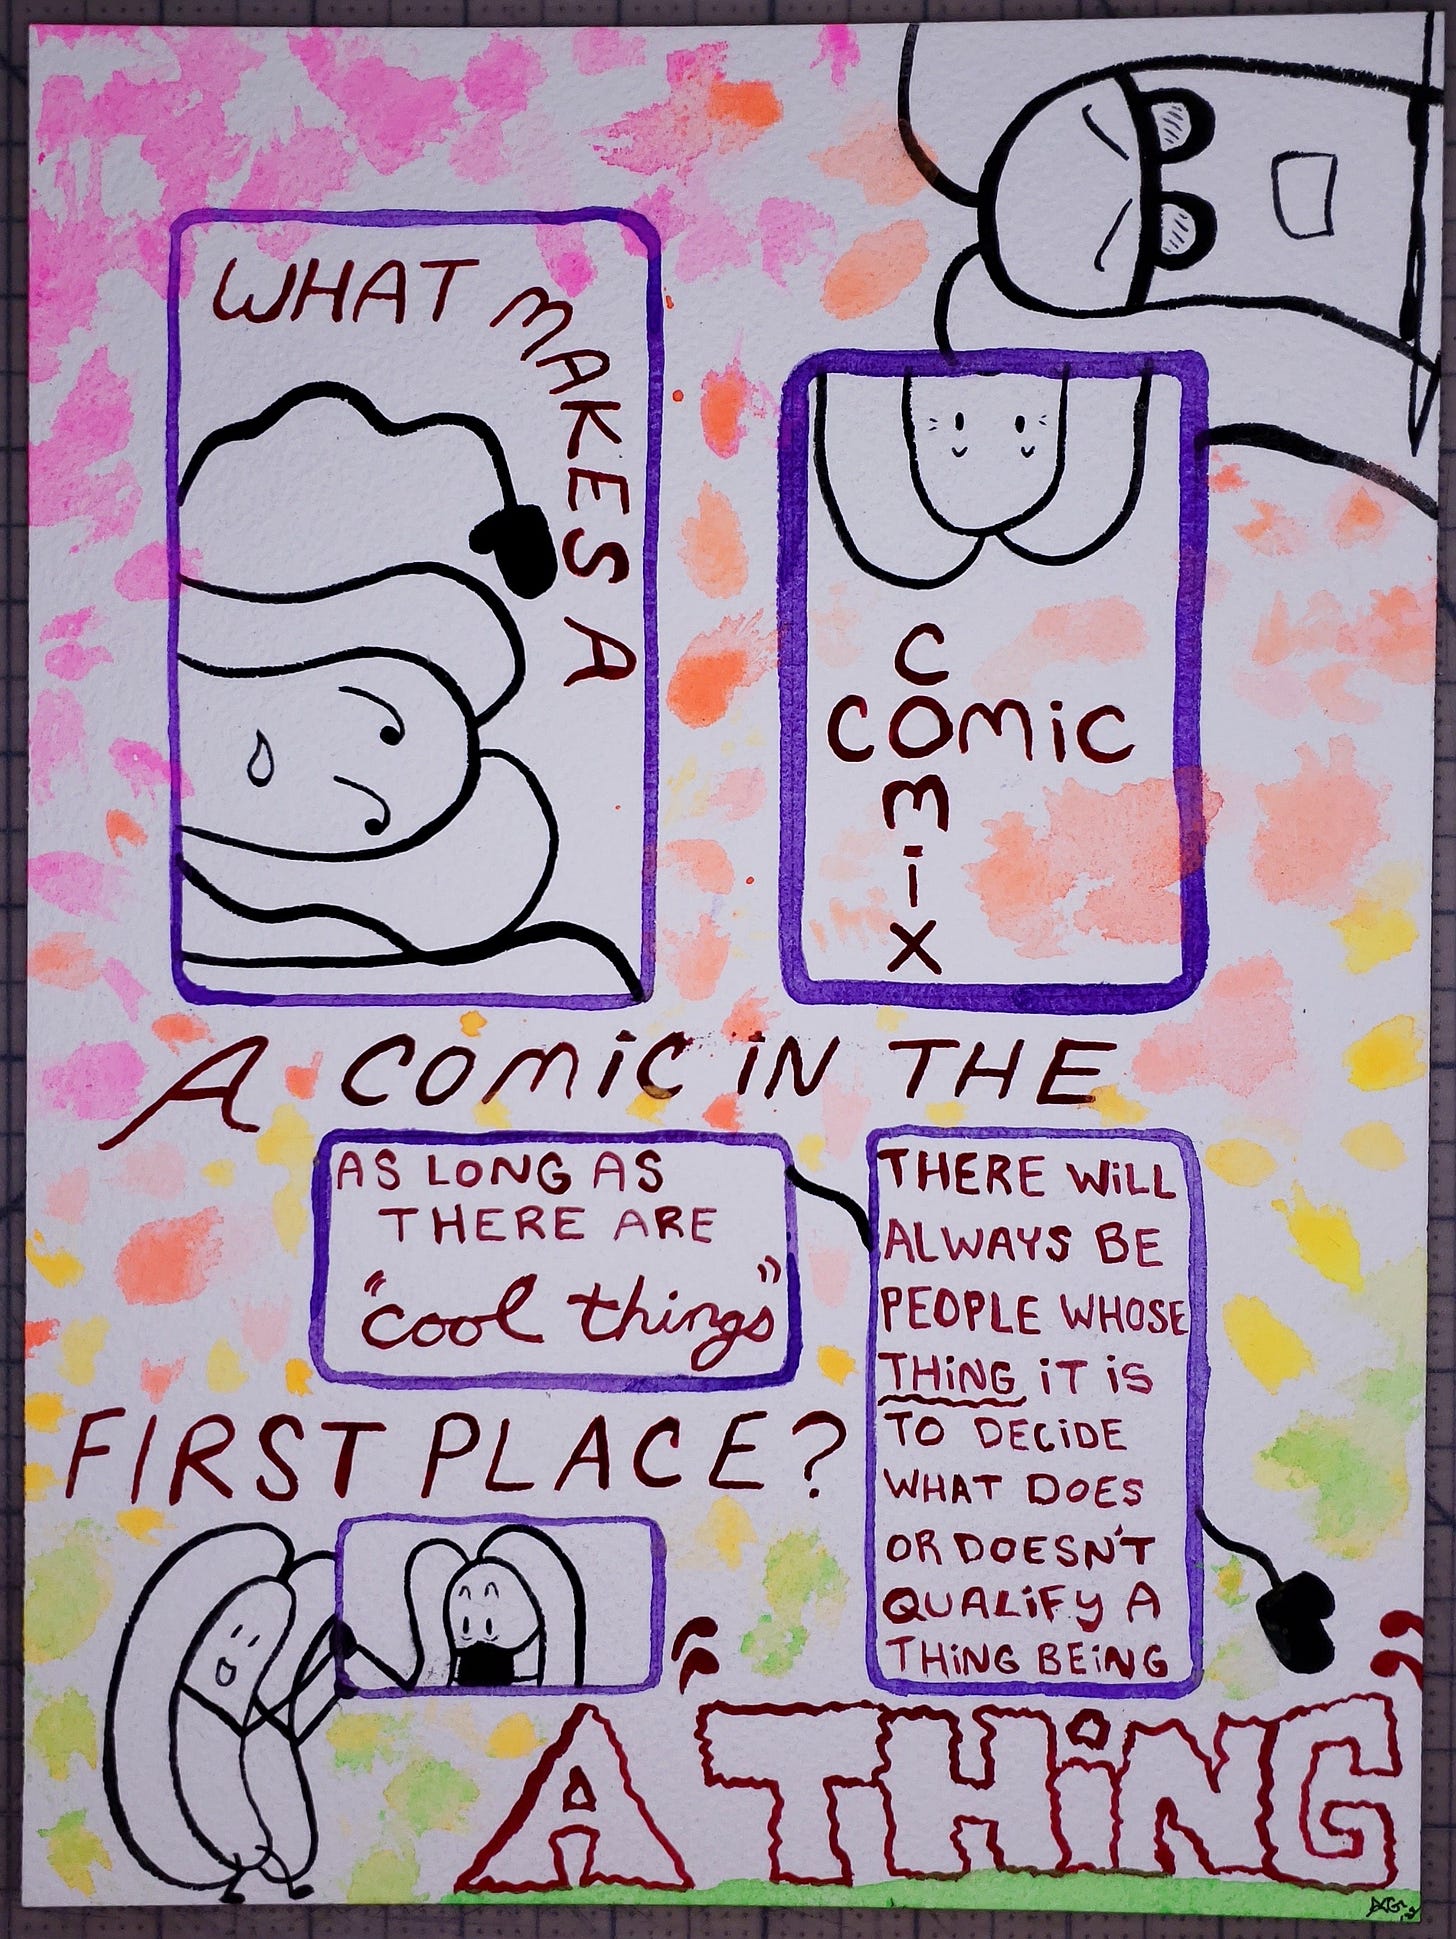 WHAT MAKES A
COMIC
COMIX
A COMIC IN THE
AS LONG AS
THERE ARE
"cool things"
THERE WILL
ALWAYS BE
PEOPLE WHOSE
THING IT IS
TO DECIDE
WHAT DOES
OR DOESN'T
QUALIFY A
THING BEING
FIRST PLACE?
"A THING"